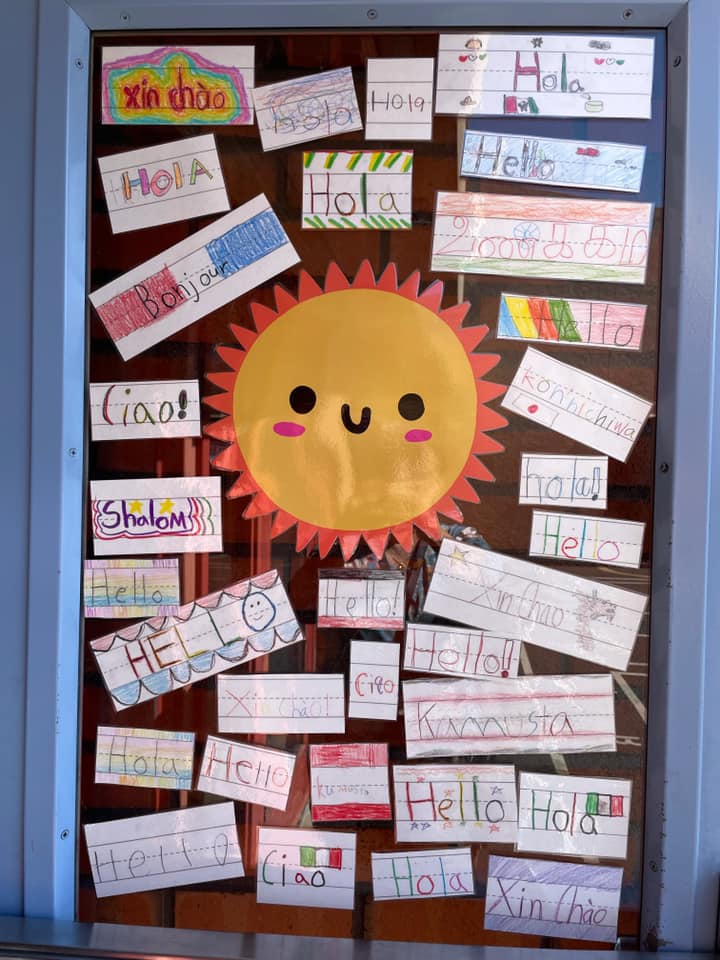 xin chào
hola
Hola
Hola
HOlA
Hello
Hola
Bonjour
Hello
konnichiwa
Ciao!
hola!
Shalom
Hello
Hello
Xin Chao
HELLO
Hello!
Hello!!
Xin Chao!
Ciao
Kumusta
Hola
Hello
kumusta
Hello
Hola
Hello
Ciao
Hola
Xin Chào